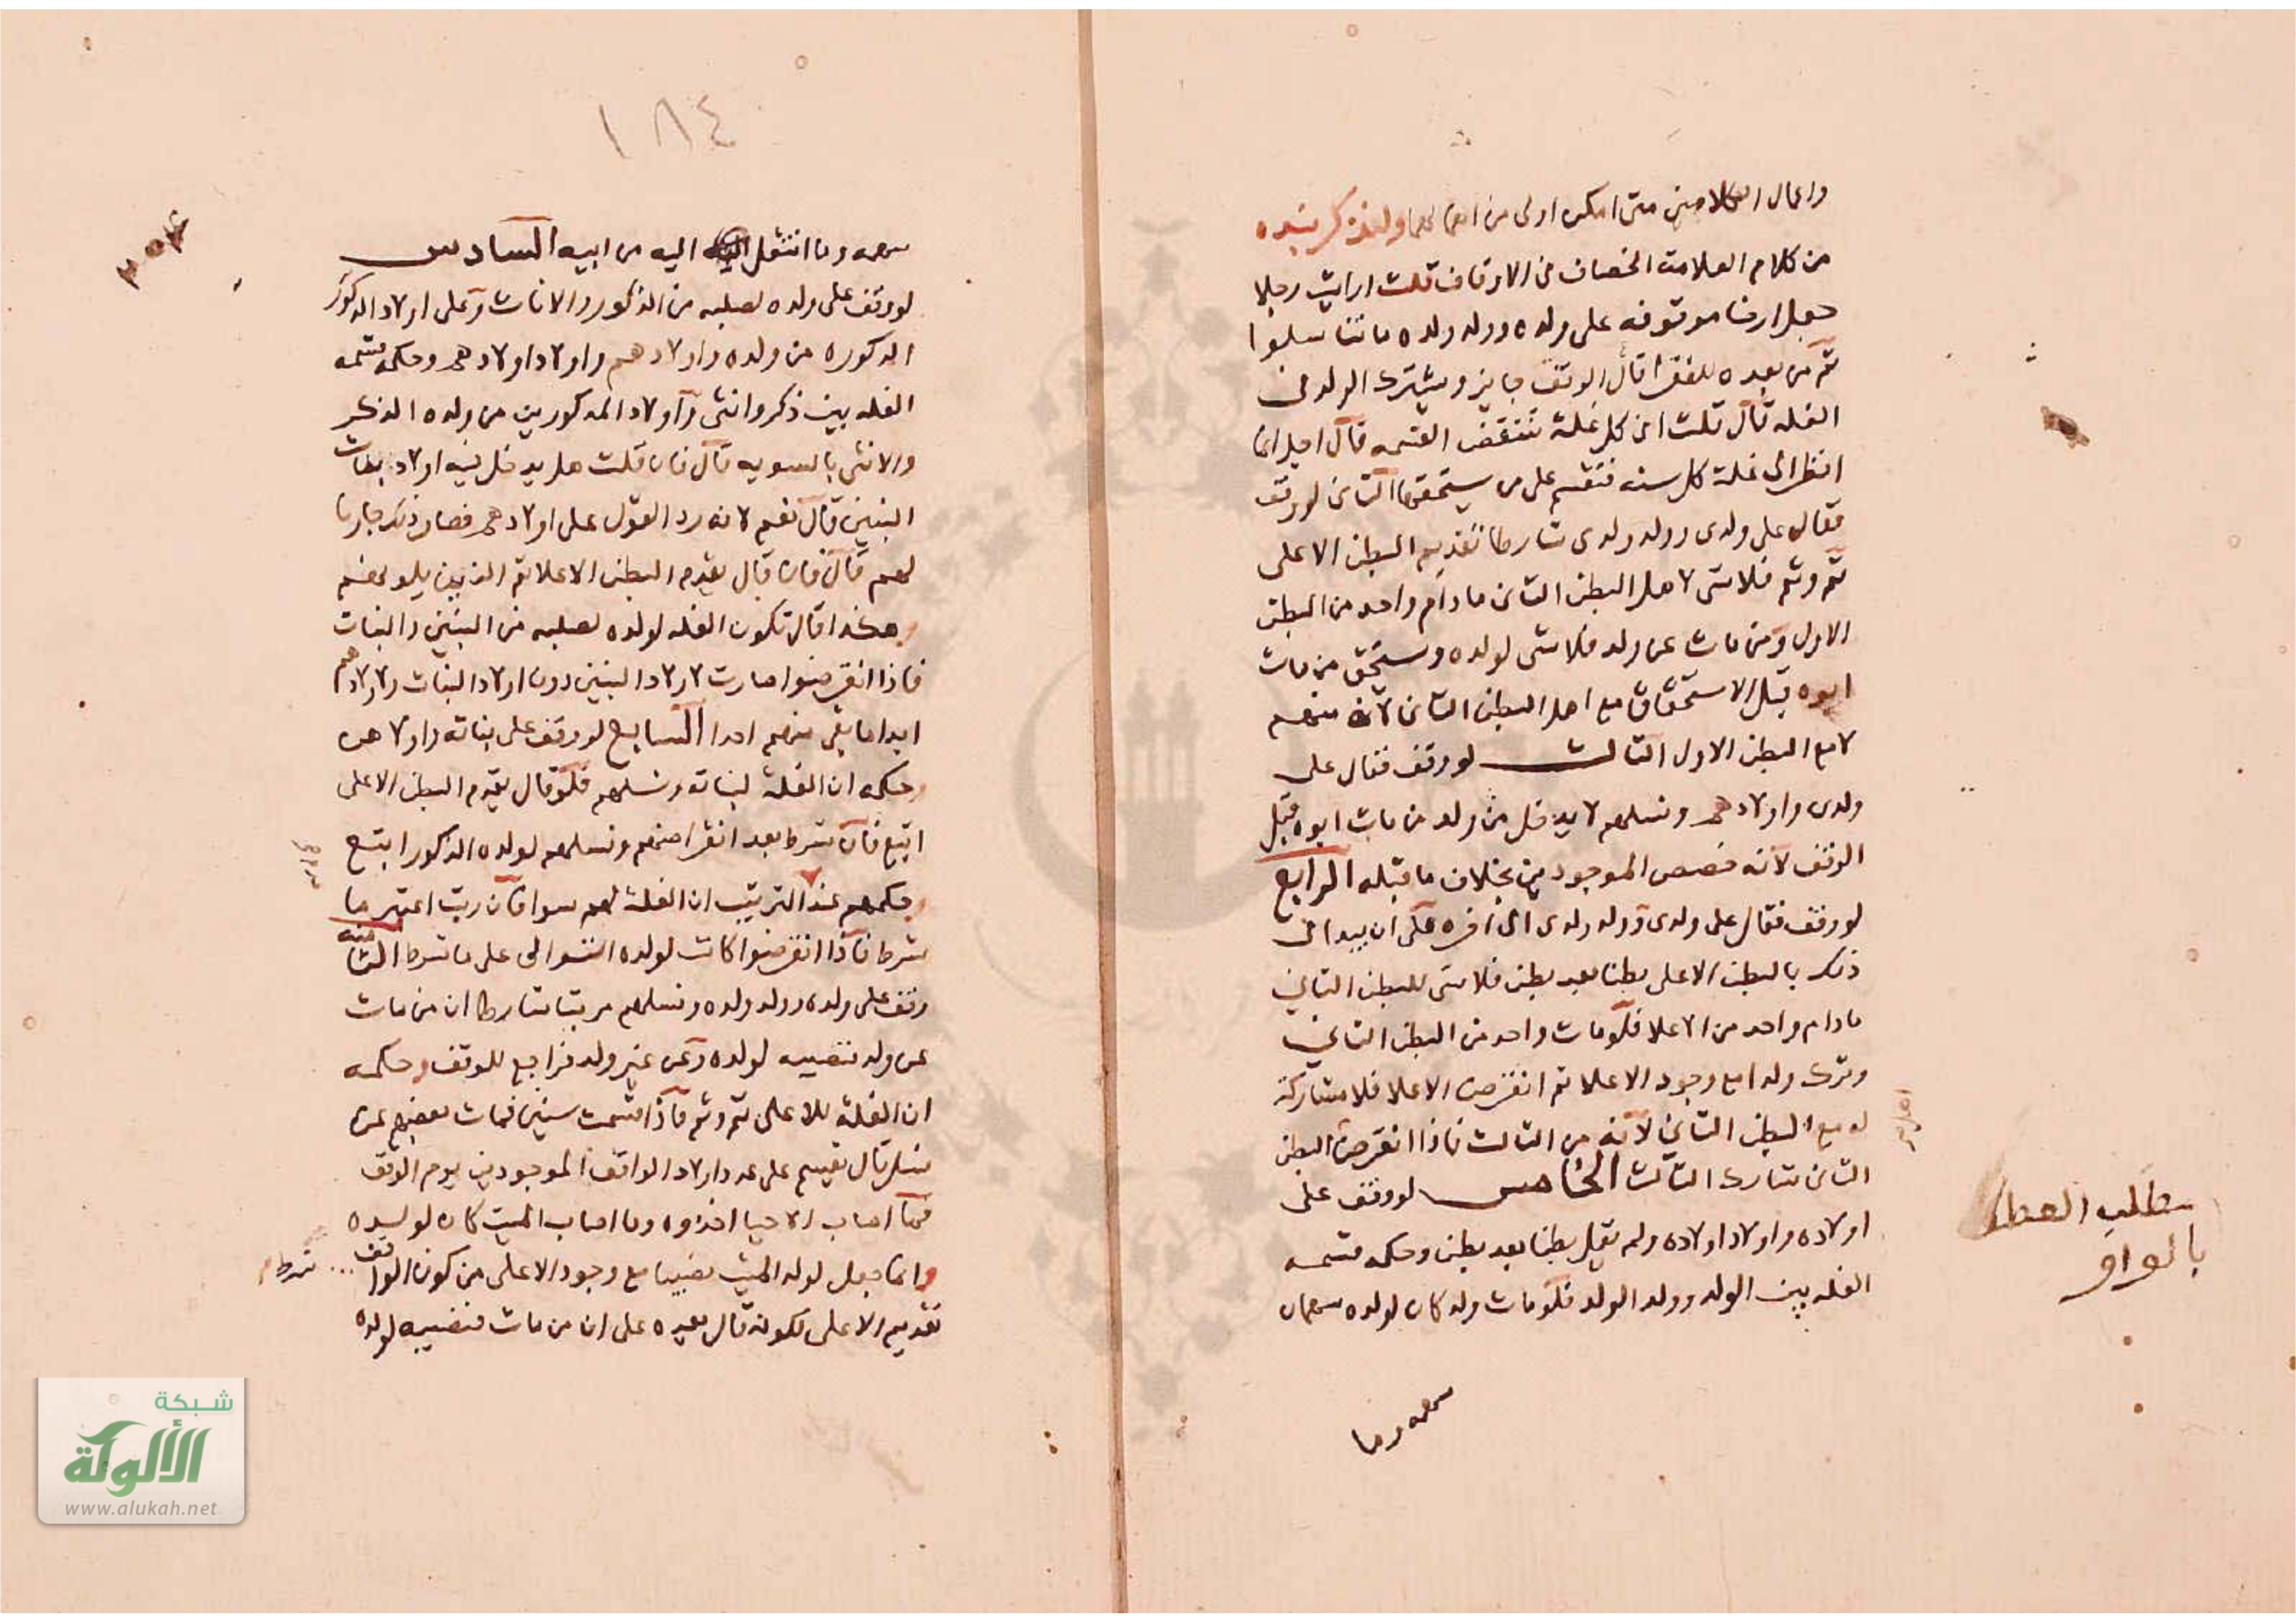 واعمال الكلامين متى امكن اولى من اهمالهما ولنذكر نبذه
من كلام العلامة الخصاف في الاوقاف قلت ارايت رجلا
جعل ارضا موقوفه على ولده وولد ولده ما تناسلوا
ثم من بعده للفقرا قال الوقف جايز ويشترك الولد في
الغله قال قلت افي كل غلة تنتقض القسمه قال اجل انما
انظر الى غلة كل سنه فتقسم على من يستحقها الثاني لو وقف
فقال على ولدي وولد ولدي شارطا تقديم البطن الاعلى
ثم وثم فلا شي لاهل البطن الثاني ما دام واحد من البطن
الاول ومن مات عن ولد فلا شي لولده ويستحق من مات
ابوه قبل الاستحقاق مع اهل البطن الثاني لانه منهم
لا مع البطن الاول الثالث لو وقف فقال على
ولدي واولادهم ونسلهم لا يدخل من ولد من مات ابوه قبل
الوقف لانه خصص الموجودين بخلاف ما قبله الرابع
لو وقف فقال على ولدي وولد ولدي الى اخره على ان يبدا في
ذلك بالبطن الاعلى بطنا بعد بطن فلا شي للبطن الثاني
ما دام واحد من الاعلا فلو مات واحد من البطن الثاني
وترك ولدا مع وجود الاعلا ثم انقرض الاعلا فلا مشاركة
له مع البطن الثاني لانه من الثالث فاذا انقرض البطن
الثاني شارك الثالث الخامس لو وقف على
اولاده واولاد اولاده ولم يقل بطنا بعد بطن وحكمه قسمه
الغله بين الولد وولد الولد فلو مات ولد كان لولده سهمان
سهمه وما
مطلب العطف
بالواو
١٨٤
سهمه وما انتقل اليه من ابيه السادس
لو وقف على ولده لصلبه من الذكور والاناث وعلى اولاد الذكور
الذكوره من ولده واولادهم واولاد اولادهم وحكمه قسمه
الغله بين ذكر وانثى واولاد المذكورين من ولده الذكر
والانثى بالسويه قال فان قلت هل يدخل فيه اولاد بنات
البنين قال نعم لانه رد القول على اولادهم فصار ذلك جاريا
لهم قال فان قال يقدم البطن الاعلا ثم الذين يلونهم
وهكذا قال تكون الغله لولده لصلبه من البنين والبنات
فاذا انقرضوا صارت لاولاد البنين دون اولاد البنات ولاولادهم
ابدا ما بقي منهم احد السابع لو وقف على بناته واولادهن
وحكمه ان الغلة لبناته ونسلهم فلو قال يقدم البطن الاعلى
اتبع فان شرط بعد انقراضهم ونسلهم لولده الذكور اتبع
وحكمهم عند الترتيب ان الغلة لهم سوا فان رتب اعتبر ما
شرط فاذا انقرضوا كانت لولده على ما شرط الثامن
وقف على ولده وولد ولده ونسلهم مرتبا شارطا ان من مات
عن ولد فنصيبه لولده وعن غير ولد فراجع للوقف وحكمه
ان الغلة للاعلى ثم وثم فاذا قسمت سنين فمات بعضهم عن
نسل قال تقسم على عدد اولاد الواقف الموجودين يوم الوقف
فما اصاب الاحيا اخذوه وما اصاب الميت كان لولده
وانما جعل لولد الميت نصيبا مع وجود الاعلى من كون الواقف
شرط
تقديم الاعلى لكونه قال بعده على ان من مات فنصيبه لولده
شبكة
الألوكة
www.alukah.net